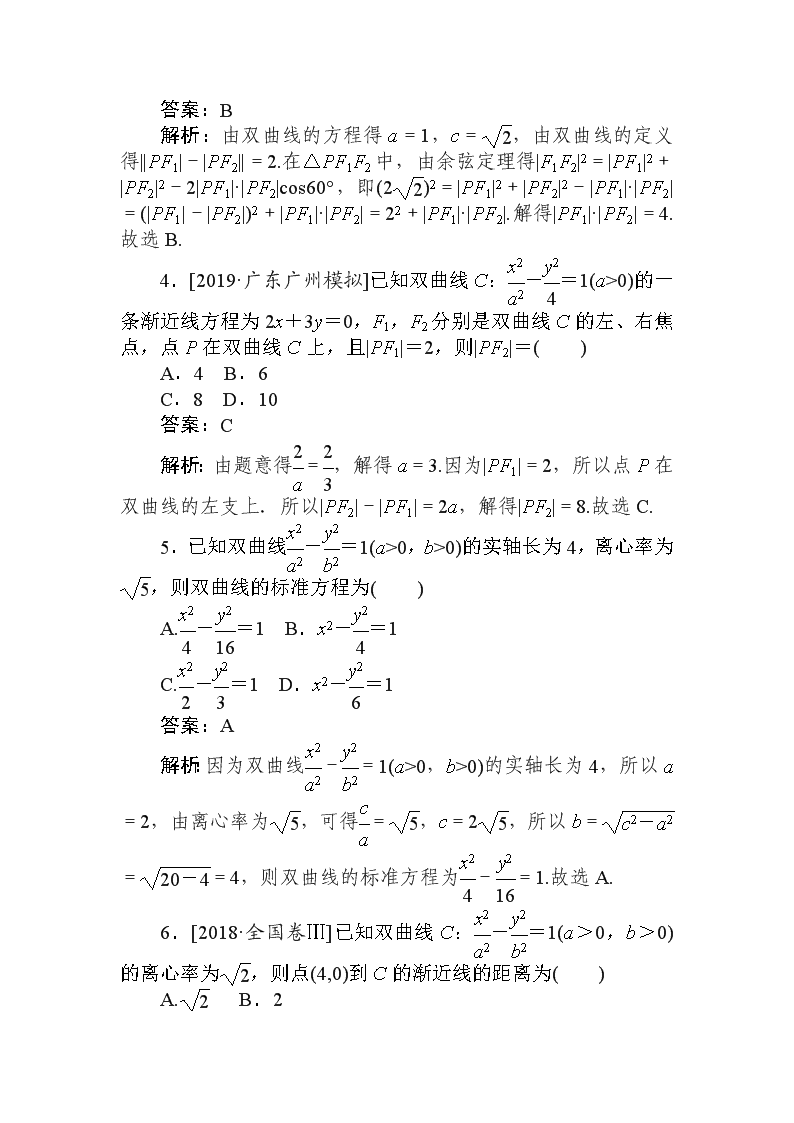 答案：B
解析：由双曲线的方程得 a＝1，c＝√2，由双曲线的定义
得||PF₁|－|PF₂||＝2.在△PF₁F₂ 中，由余弦定理得|F₁F₂|²＝|PF₁|²＋
|PF₂|²－2|PF₁|·|PF₂|cos60°，即(2√2)²＝|PF₁|²＋|PF₂|²－|PF₁|·|PF₂|
＝(|PF₁|－|PF₂|)²＋|PF₁|·|PF₂|＝2²＋|PF₁|·|PF₂|.解得|PF₁|·|PF₂|＝4.
故选 B.
4．[2019·广东广州模拟]已知双曲线 C：x²/a²－y²/4＝1(a>0)的一
条渐近线方程为 2x＋3y＝0，F₁，F₂ 分别是双曲线 C 的左、右焦
点，点 P 在双曲线 C 上，且|PF₁|＝2，则|PF₂|＝(　　)
A．4　B．6
C．8　D．10
答案：C
解析：由题意得2/a＝2/3，解得 a＝3.因为|PF₁|＝2，所以点 P 在
双曲线的左支上．所以|PF₂|－|PF₁|＝2a，解得|PF₂|＝8.故选 C.
5．已知双曲线x²/a²－y²/b²＝1(a>0，b>0)的实轴长为 4，离心率为
√5，则双曲线的标准方程为(　　)
A.x²/4－y²/16＝1　B．x²－y²/4＝1
C.x²/2－y²/3＝1　D．x²－y²/6＝1
答案：A
解析：因为双曲线x²/a²－y²/b²＝1(a>0，b>0)的实轴长为 4，所以 a
＝2，由离心率为√5，可得c/a＝√5，c＝2√5，所以 b＝√(c²－a²)
＝√(20－4)＝4，则双曲线的标准方程为x²/4－y²/16＝1.故选 A.
6．[2018·全国卷Ⅲ]已知双曲线 C：x²/a²－y²/b²＝1(a＞0，b＞0)
的离心率为√2，则点(4,0)到 C 的渐近线的距离为(　　)
A.√2　B．2